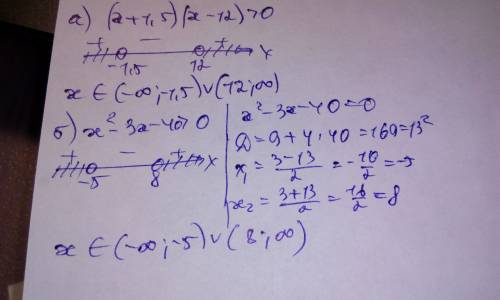 а) (x+1,5)(x-12)>0
+ − +
-1,5 12 x
x ∈ (-∞; -1,5) ∪ (12; ∞)
б) x²-3x-40>0
+ − +
-5 8 x
x²-3x-40=0
D=9+4·40=169=13²
x₁=(3-13)/2=-10/2=-5
x₂=(3+13)/2=16/2=8
x ∈ (-∞; -5) ∪ (8; ∞)